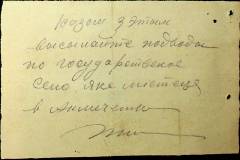 Разом з этим
высылайте подводы
по государственное
сено, яке містеця
в Анмечетки